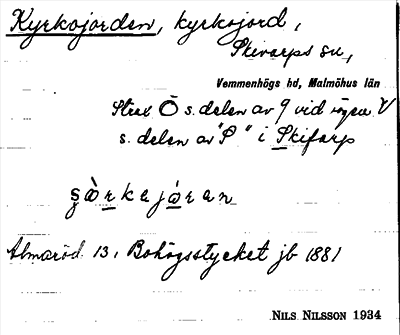 Kyrkojorden, kyrkojord,
Skivarps sn,
Vemmenhögs hd, Malmöhus län
Strax Ö s. delen av 9 vid vägen V
s. delen av "S" i Skifarp
Almaröd 13, Bohögsstycket jb 1881
NILS NILSSON 1934